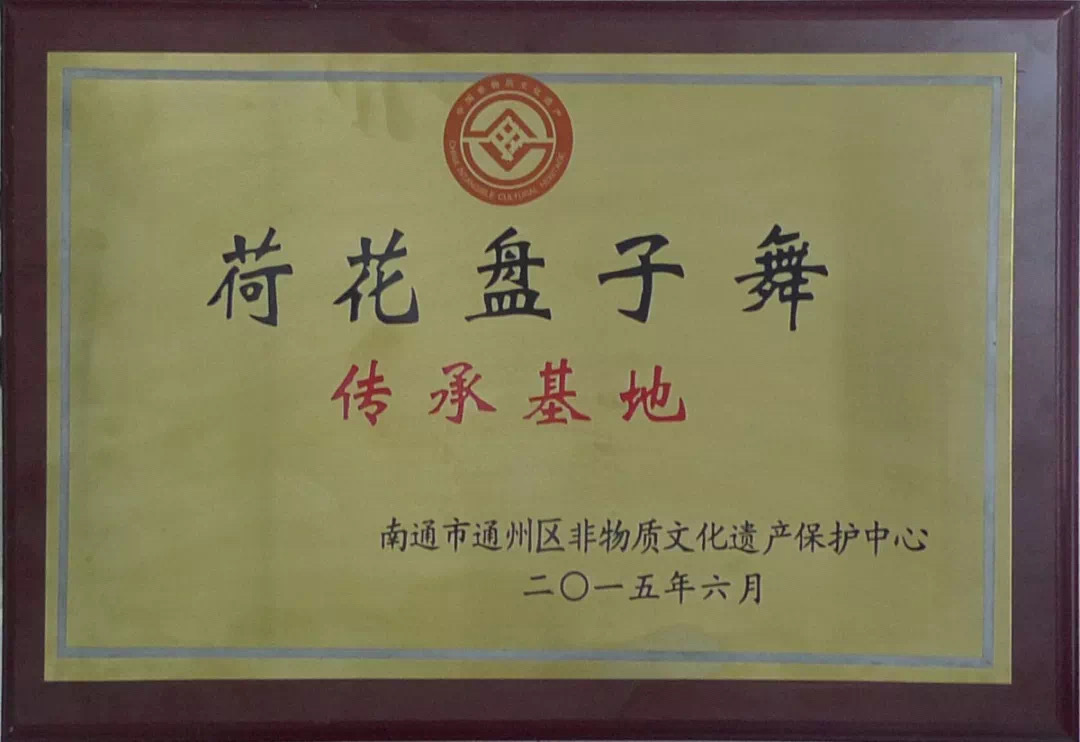 中国非物质文化遗产
CHINA INTANGIBLE CULTURAL HERITAGE
荷花盘子舞
传承基地
南通市通州区非物质文化遗产保护中心
二〇一五年六月